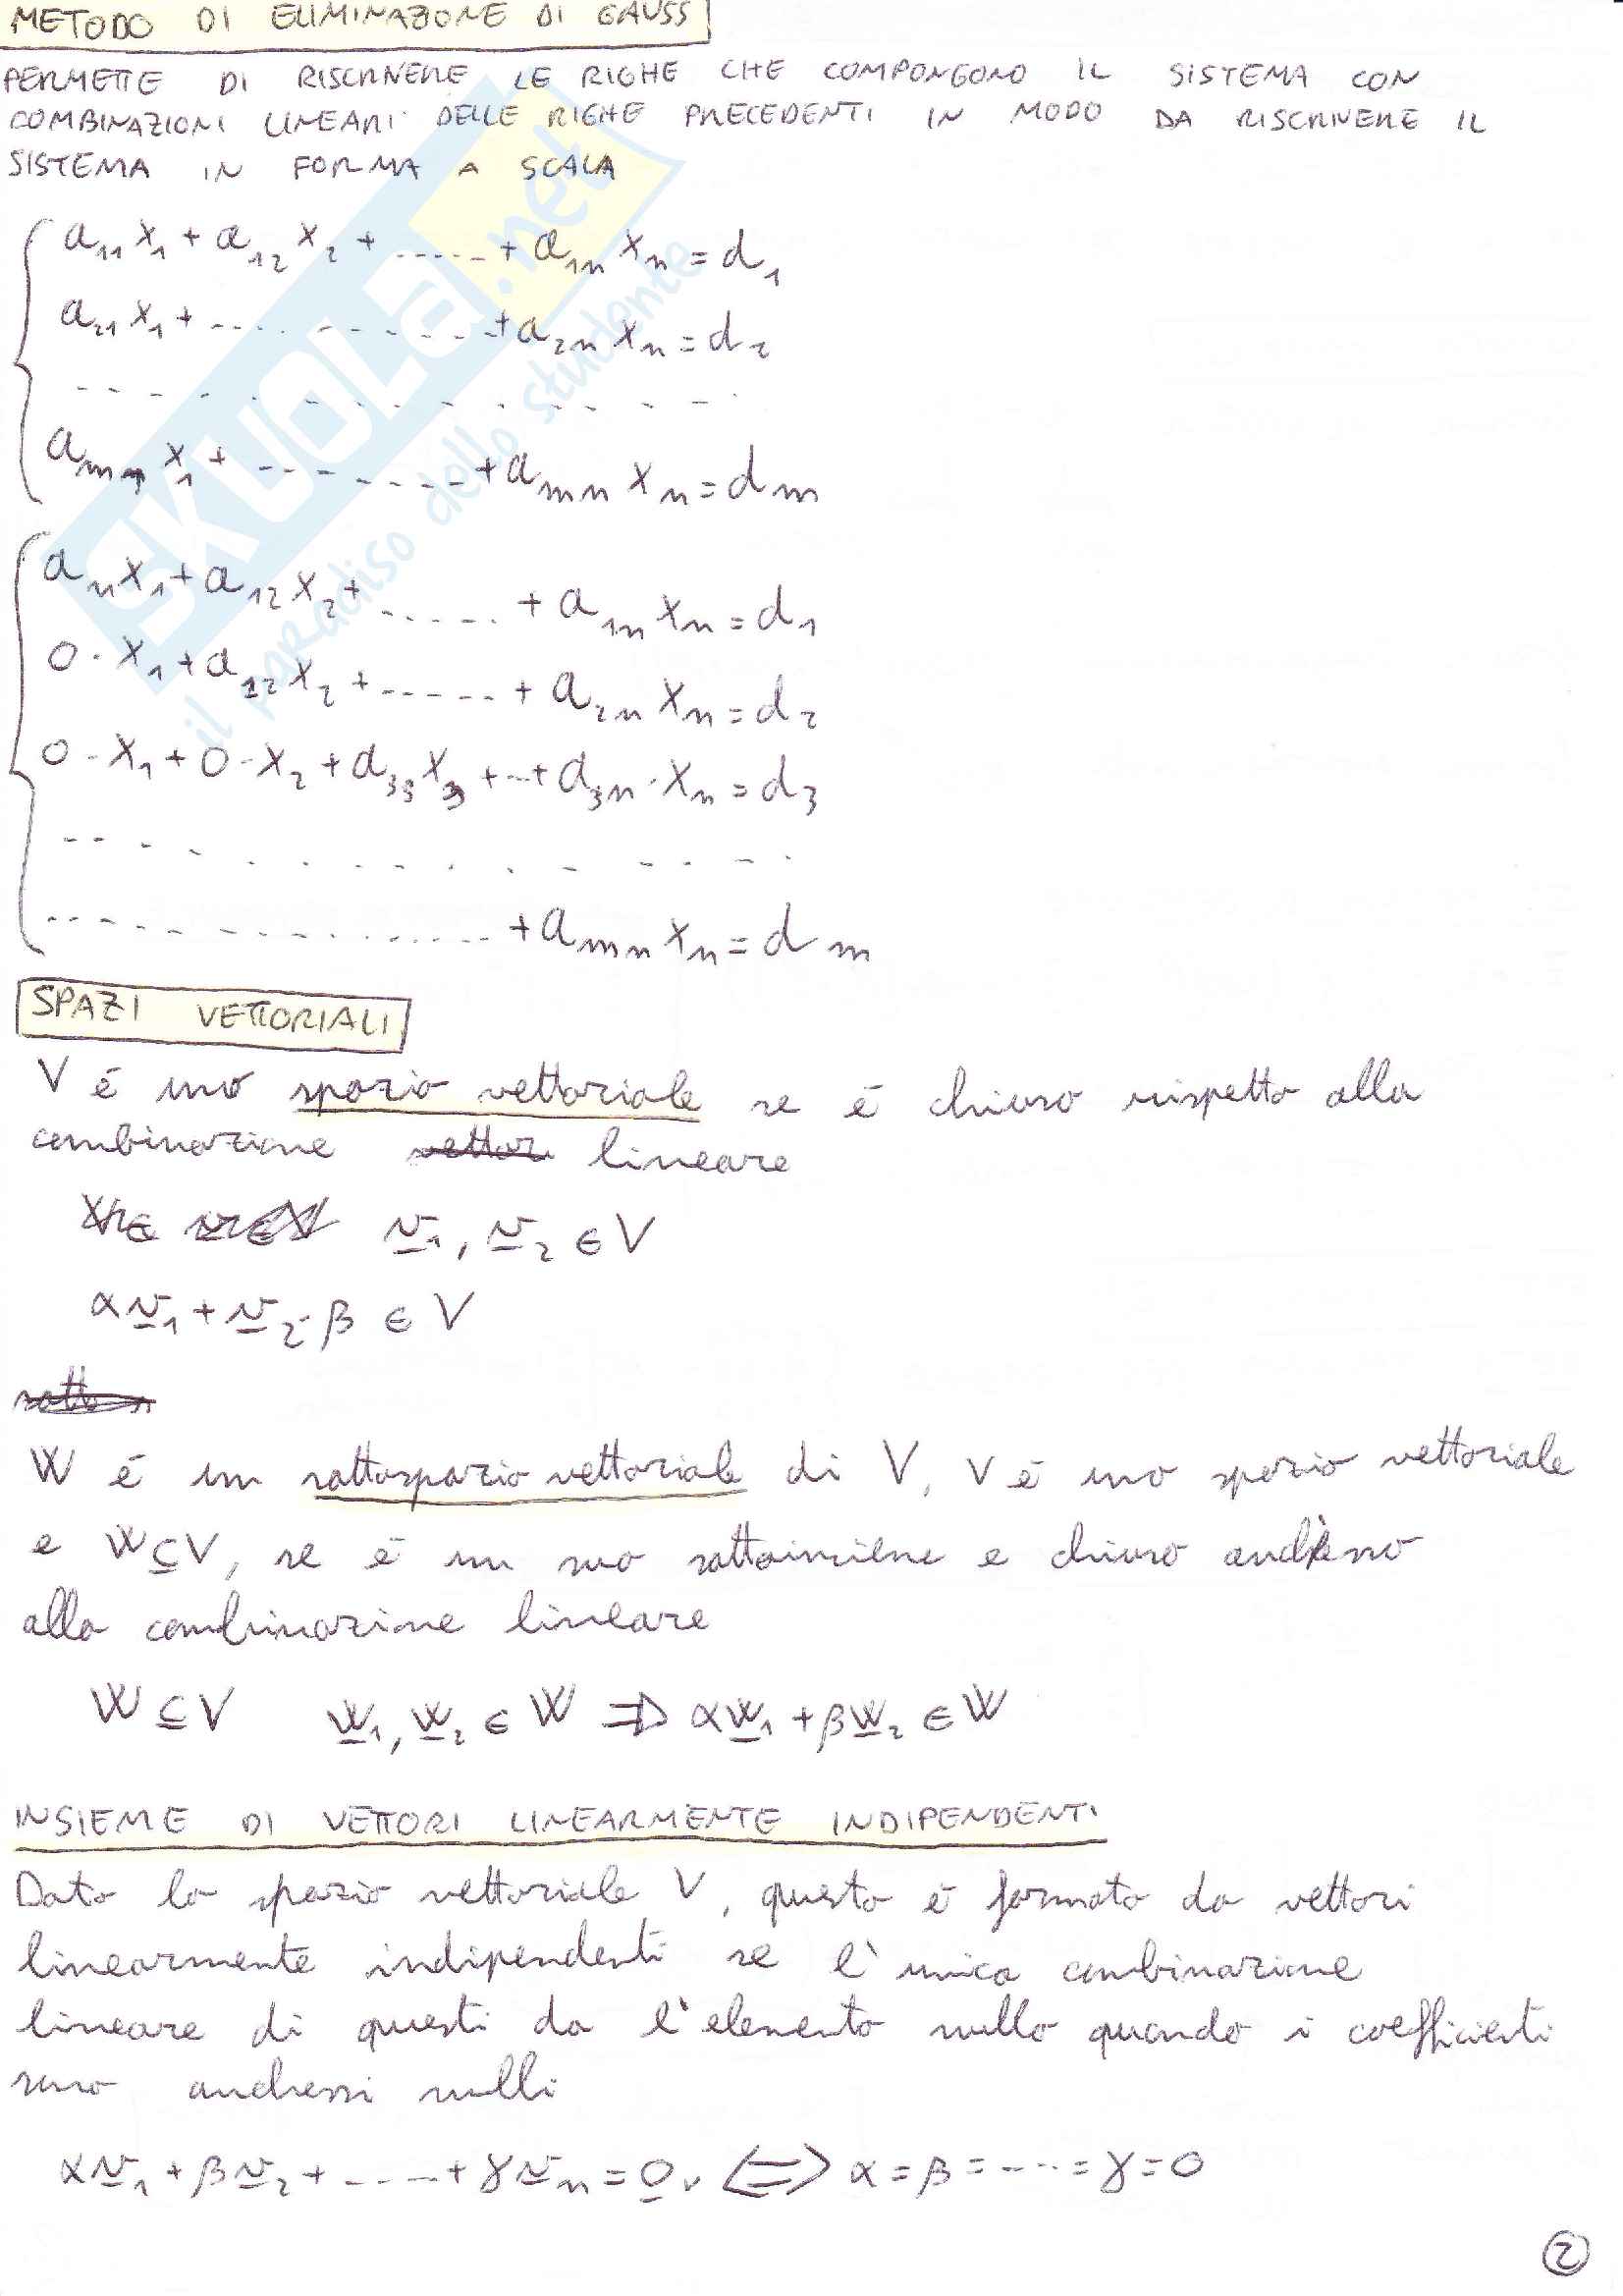 METODO DI ELIMINAZIONE DI GAUSS
PERMETTE DI RISCRIVERE LE RIGHE CHE COMPONGONO IL SISTEMA CON
COMBINAZIONI LINEARI DELLE RIGHE PRECEDENTI IN MODO DA RISCRIVERE IL
SISTEMA IN FORMA A SCALA
a₁₁x₁ + a₁₂x₂ + ...... + a₁ₙxₙ = d₁
a₂₁x₁ + ........... + a₂ₙxₙ = d₂
- - - - - - - - - - - - - -
aₘ₁x₁ + --------- + aₘₙxₙ = dₘ
a₁₁x₁ + a₁₂x₂ + ...... + a₁ₙxₙ = d₁
0·x₁ + a₁₂x₂ + ...... + a₂ₙxₙ = d₂
0·x₁ + 0·x₂ + a₃₃x₃ + ... + a₃ₙ·xₙ = d₃
- - - - - - - - - - - - - -
.................... + aₘₙxₙ = dₘ
SPAZI VETTORIALI
V é uno spazio vettoriale se é chiuso rispetto alla
combinazione lineare
v₁, v₂ ∈ V
αv₁ + v₂·β ∈ V
W é un sottospazio vettoriale di V, V é uno spazio vettoriale
e W⊆V, se é un suo sottoinsieme e chiuso anch'esso
alla combinazione lineare
W⊆V w₁, w₂ ∈ W ⇒ αw₁ + βw₂ ∈ W
INSIEME DI VETTORI LINEARMENTE INDIPENDENTI
Dato lo spazio vettoriale V, questo é formato da vettori
linearmente indipendenti se l'unica combinazione
lineare di questi da l'elemento nullo quando i coefficienti
sono anchessi nulli
αv₁ + βv₂ + ...... + γvₙ = 0ᵥ ⟺ α = β = ---- = γ = 0
2
SKUOLA.net
il paradiso dello studente